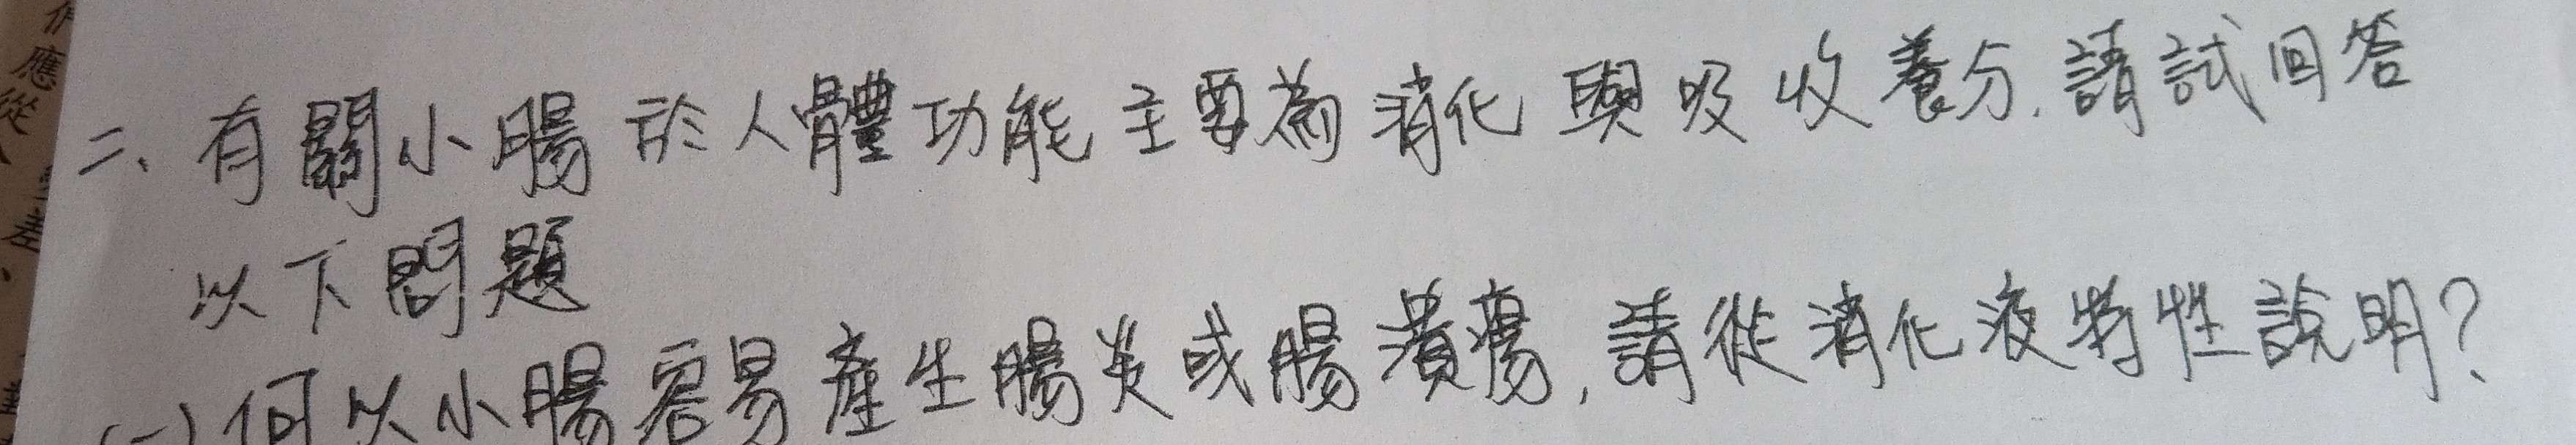 二、有關小腸於人體功能主要為消化與吸收養分,請試回答
以下問題
(一)何以小腸容易產生腸炎或腸潰瘍,請從消化液特性說明?
應
從